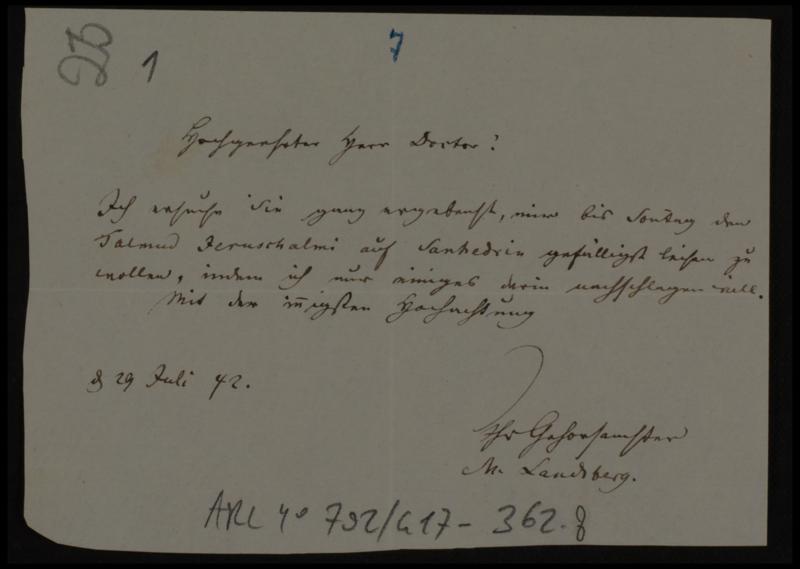 1
7
Hochgeehrter Herr Doctor!
Ich ersuche Sie ganz ergebenst, mir bis Sontag den
Talmud Jeruschalmi auf Sanhedrin gefälligst leihen zu
wollen, indem ich nur einiges darin nachschlagen will.
Mit der innigsten Hochachtung
d 29 Juli 42.
Ihr Gehorsamster
M. Landsberg.
ARC 4° 792/G17-362.8